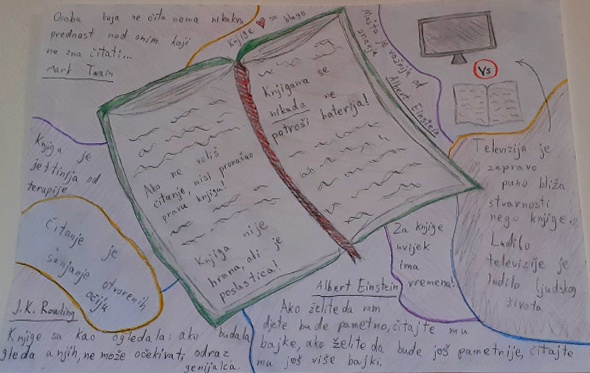 Osoba koja ne čita nema nikakvu
prednost nad onim koji
ne zna čitati...
Mark Twain
Knjige ♥ = blago
Mašta je važnija od
znanja
Albert Einstein
Vs
Knjiga je
jeftinija od
terapije
Ako ne voliš
čitanje, nisi pronašao
pravu knjigu!
Knjiga nije
hrana, ali je
poslastica!
Knjigama se
nikada ne
potroši baterija!
Televizija je
zapravo
puno bliža
stvarnosti
nego knjige.
Ludilo
televizije je
ludilo ljudskog
života
Čitanje je
sanjanje otvorenih
očiju
Za knjige
uvijek
ima
vremena!
J.K. Rowling
Knjige su kao ogledala: ako budala
gleda u njih, ne može očekivati odraz
genijalca.
Albert Einstein
Ako želite da vam
djete bude pametno, čitajte mu
bajke, ako želite da bude još pametnije, čitajte
mu još više bajki.